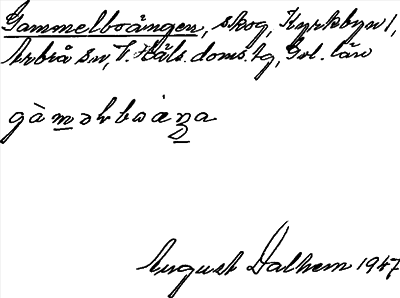 Gammelboängen, skog, Kyrkbyn 1,
Arbrå sn, V. Häls. doms.tg, Gvl. län
gàmǝlboäŋa
August Dalhem 1947